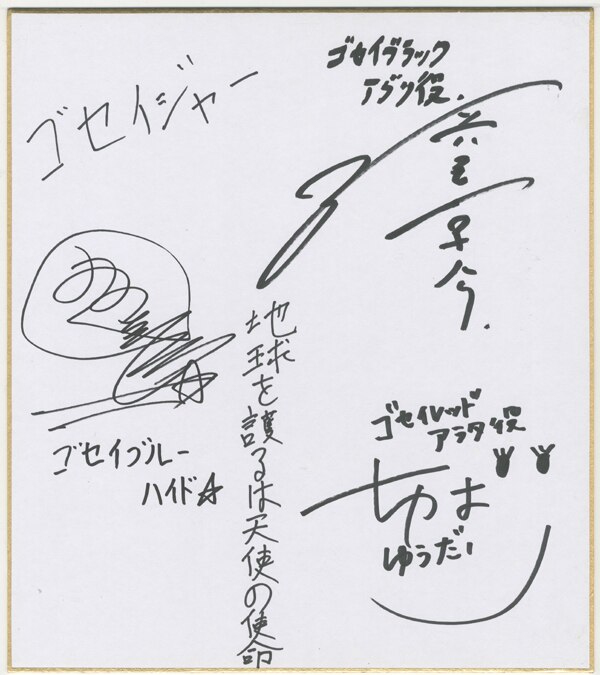 ゴセイブラック
アグリ役.
ゴセイジャー
地球を護るは天使の使命
ゴセイレッド
アラタ役
ちば
ゆうだい
ゴセイブルー
ハイド☆